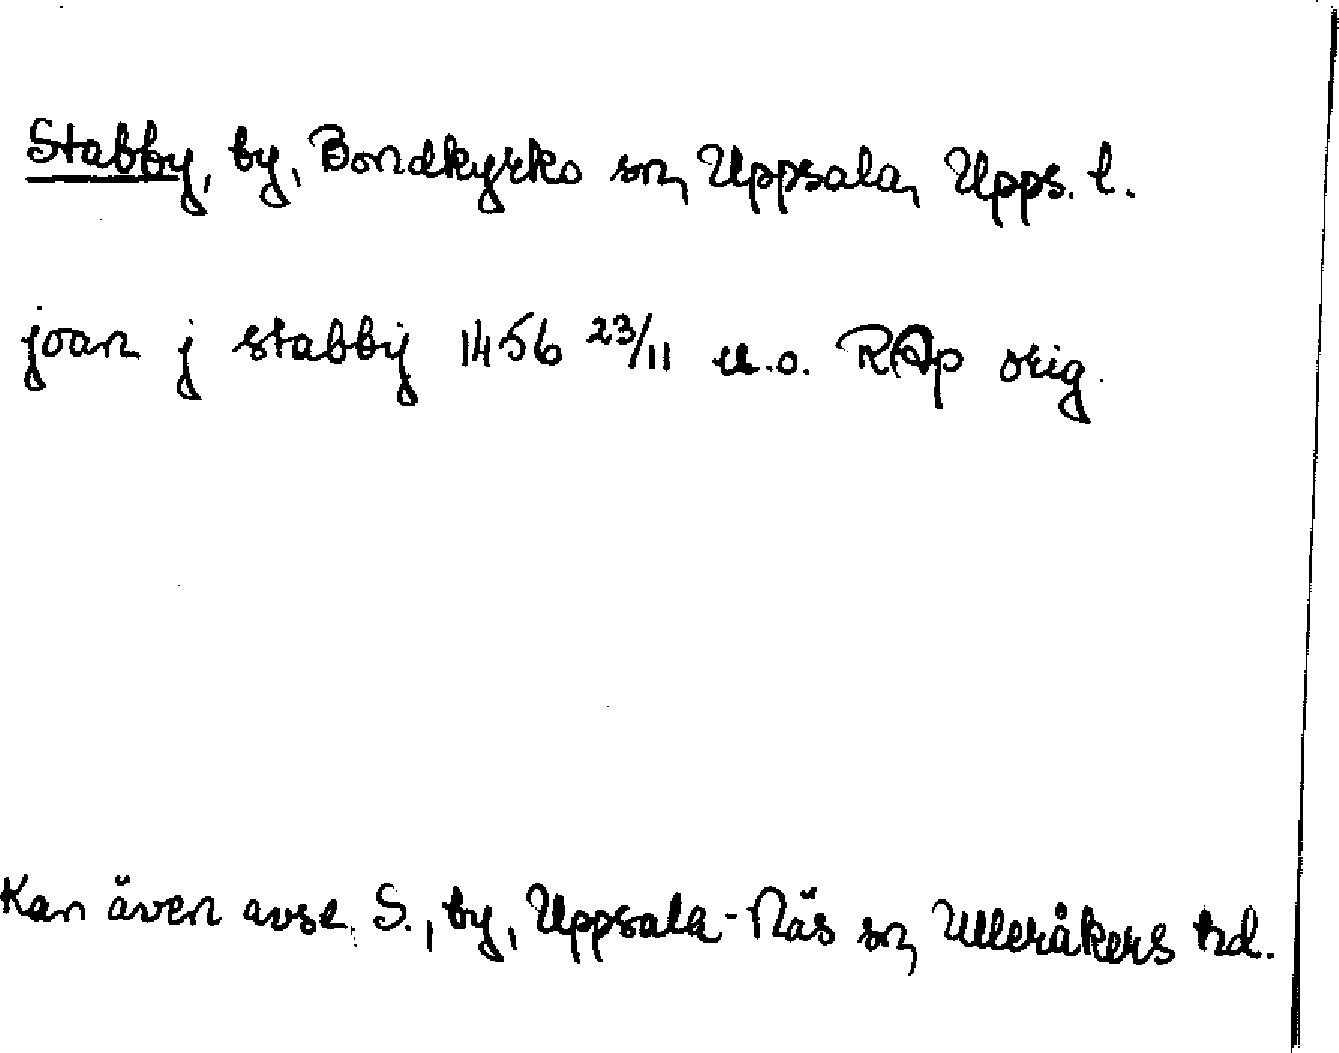 Stabby, by, Bondkyrko sn, Uppsala, Upps. l.
joan j stabbÿ 1456 23/11 u.o. RAp orig.
Kan även avse S., by, Uppsala-Näs sn, Ulleråkers hd.